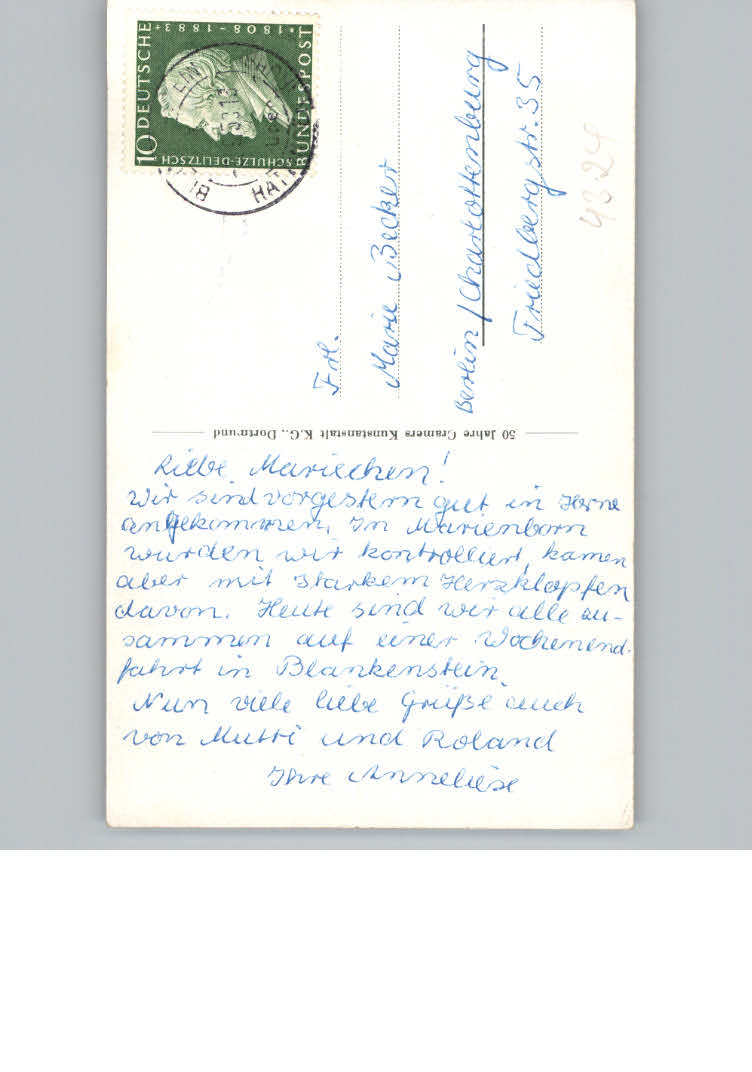 Liebe Mariechen!
Wir sind vorgestern gut in Herne
angekommen. In Marienborn
wurden wir kontrolliert, kamen
aber mit starkem Herzklopfen
davon. Heute sind wir alle zu-
sammen auf einer Wochenend-
fahrt in Blankenstein.
Nun viele liebe Grüße auch
von Mutti und Roland
Ihre Anneliese
50 Jahre Cramers Kunstanstalt K.G., Dortmund
Frl.
Marie Becker
Berlin/Charlottenburg
Friedbergstr. 35
4324
10 DEUTSCHE BUNDESPOST
1808-1883
SCHULZE-DELITZSCH